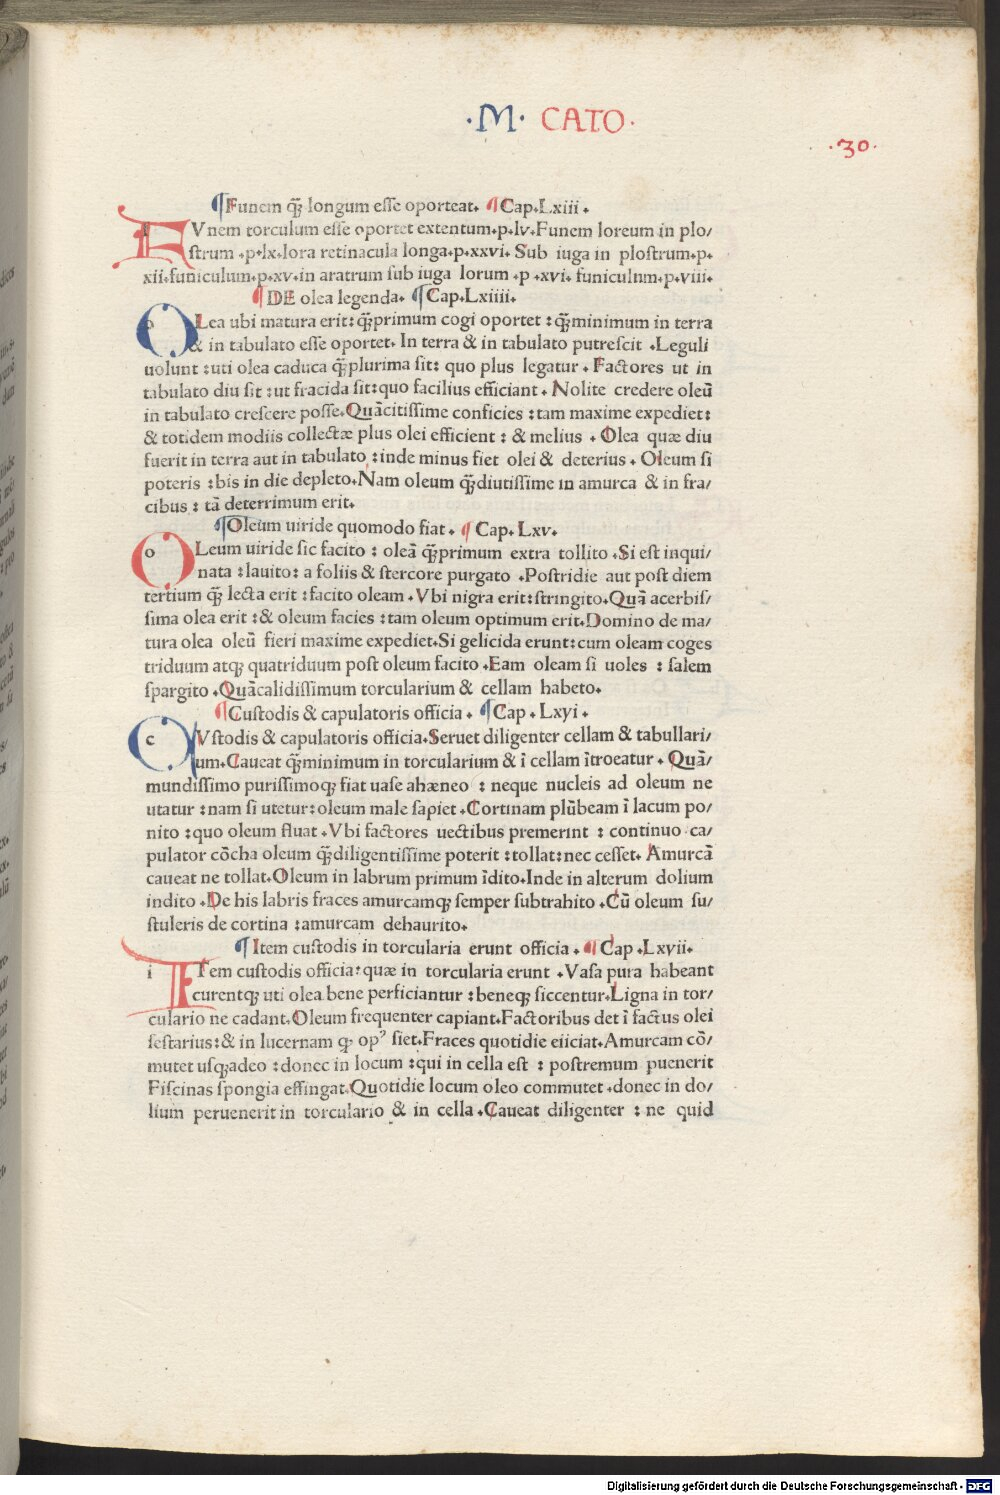 ·M· CATO·
·30·
¶Funem qȝ longum esse oporteat. ¶Cap.Lxiii.
FVnem torculum esse oportet extentum.p.lv.Funem loreum in plo/
strum .p.lx.lora retinacula longa.p.xxvi. Sub iuga in plostrum.p.
xii.funiculum.p.xv.in aratrum sub iuga lorum .p .xvi. funiculum.p.viii.
¶DE olea legenda. ¶Cap.Lxiiii.
OLea ubi matura erit: qȝprimum cogi oportet : qȝminimum in terra
& in tabulato esse oportet. In terra & in tabulato putrescit .Leguli
uolunt :uti olea caduca qȝplurima sit: quo plus legatur . Factores ut in
tabulato diu sit :ut fracida sit:quo facilius efficiant . Nolite credere oleū
in tabulato crescere posse.Quācitissime conficies :tam maxime expediet:
& totidem modiis collectæ plus olei efficient : & melius . Olea quæ diu
fuerit in terra aut in tabulato :inde minus fiet olei & deterius . Oleum si
poteris :bis in die depleto.Nam oleum qȝdiutissime in amurca & in fra/
cibus : tā deterrimum erit.
¶Oleum uiride quomodo fiat . ¶Cap. Lxv.
OLeum uiride sic facito : oleā qȝprimum extra tollito .Si est inqui/
nata :lauito: a foliis & stercore purgato .Postridie aut post diem
tertium qȝ lecta erit :facito oleam .Vbi nigra erit:stringito.Quā acerbis/
sima olea erit :& oleum facies :tam oleum optimum erit.Domino de ma/
tura olea oleū fieri maxime expediet.Si gelicida erunt:cum oleam coges
triduum atqȝ quatriduum post oleum facito .Eam oleam si uoles : salem
spargito .Quācalidissimum torcularium & cellam habeto.
¶Custodis & capulatoris officia . ¶Cap . Lxyi .
CVstodis & capulatoris officia.Seruet diligenter cellam & tabullari/
um.Caueat qȝminimum in torcularium & ī cellam ītroeatur . Quā/
mundissimo purissimoqȝ fiat uase ahæneo : neque nucleis ad oleum ne
utatur :nam si utetur:oleum male sapiet .Cortinam plūbeam ī lacum po/
nito :quo oleum fluat .Vbi factores uectibus premerint : continuo ca/
pulator cōcha oleum qȝdiligentissime poterit :tollat:nec cesset. Amurcā
caueat ne tollat.Oleum in labrum primum īdito.Inde in alterum dolium
indito .De his labris fraces amurcamqȝ semper subtrahito .Cū oleum su/
stuleris de cortina :amurcam dehaurito.
¶Item custodis in torcularia erunt officia . ¶Cap .Lxvii.
ITem custodis officia:quæ in torcularia erunt .Vasa pura habeant
curentqȝ uti olea bene perficiantur :beneqȝ siccentur.Ligna in tor/
culario ne cadant.Oleum frequenter capiant.Factoribus det ī factus olei
sestarius:& in lucernam qȝ opꝰ siet.Fraces quotidie eiiciat.Amurcam cō/
mutet usqȝadeo :donec in locum :qui in cella est : postremum puenerit
Fiscinas spongia effingat.Quotidie locum oleo commutet .donec in do/
lium peruenerit in torculario & in cella .Caueat diligenter : ne quid
Digitalisierung gefördert durch die Deutsche Forschungsgemeinschaft - DFG